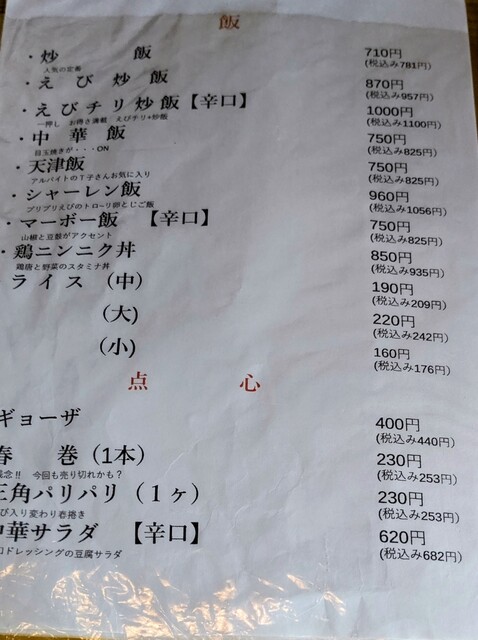 飯
・炒飯 710円
人気の定番 (税込み781円)
・えび炒飯 870円
(税込み957円)
・えびチリ炒飯【辛口】 1000円
一押し お得さ満載 えびチリ+炒飯 (税込み1100円)
・中華飯 750円
目玉焼きが・・・ON (税込み825円)
・天津飯 750円
アルバイトのT子さんお気に入り (税込み825円)
・シャーレン飯 960円
プリプリえびのトロ~リ卵とじご飯 (税込み1056円)
・マーボー飯 【辛口】 750円
山椒と豆鼓がアクセント (税込み825円)
・鶏ニンニク丼 850円
鶏唐と野菜のスタミナ丼 (税込み935円)
ライス (中) 190円
(税込み209円)
(大) 220円
(税込み242円)
(小) 160円
(税込み176円)
点心
ギョーザ 400円
(税込み440円)
春巻(1本) 230円
残念!! 今回も売り切れかも? (税込み253円)
三角パリパリ(1ヶ) 230円
び入り変わり春捲き (税込み253円)
中華サラダ 【辛口】 620円
口ドレッシングの豆腐サラダ (税込み682円)